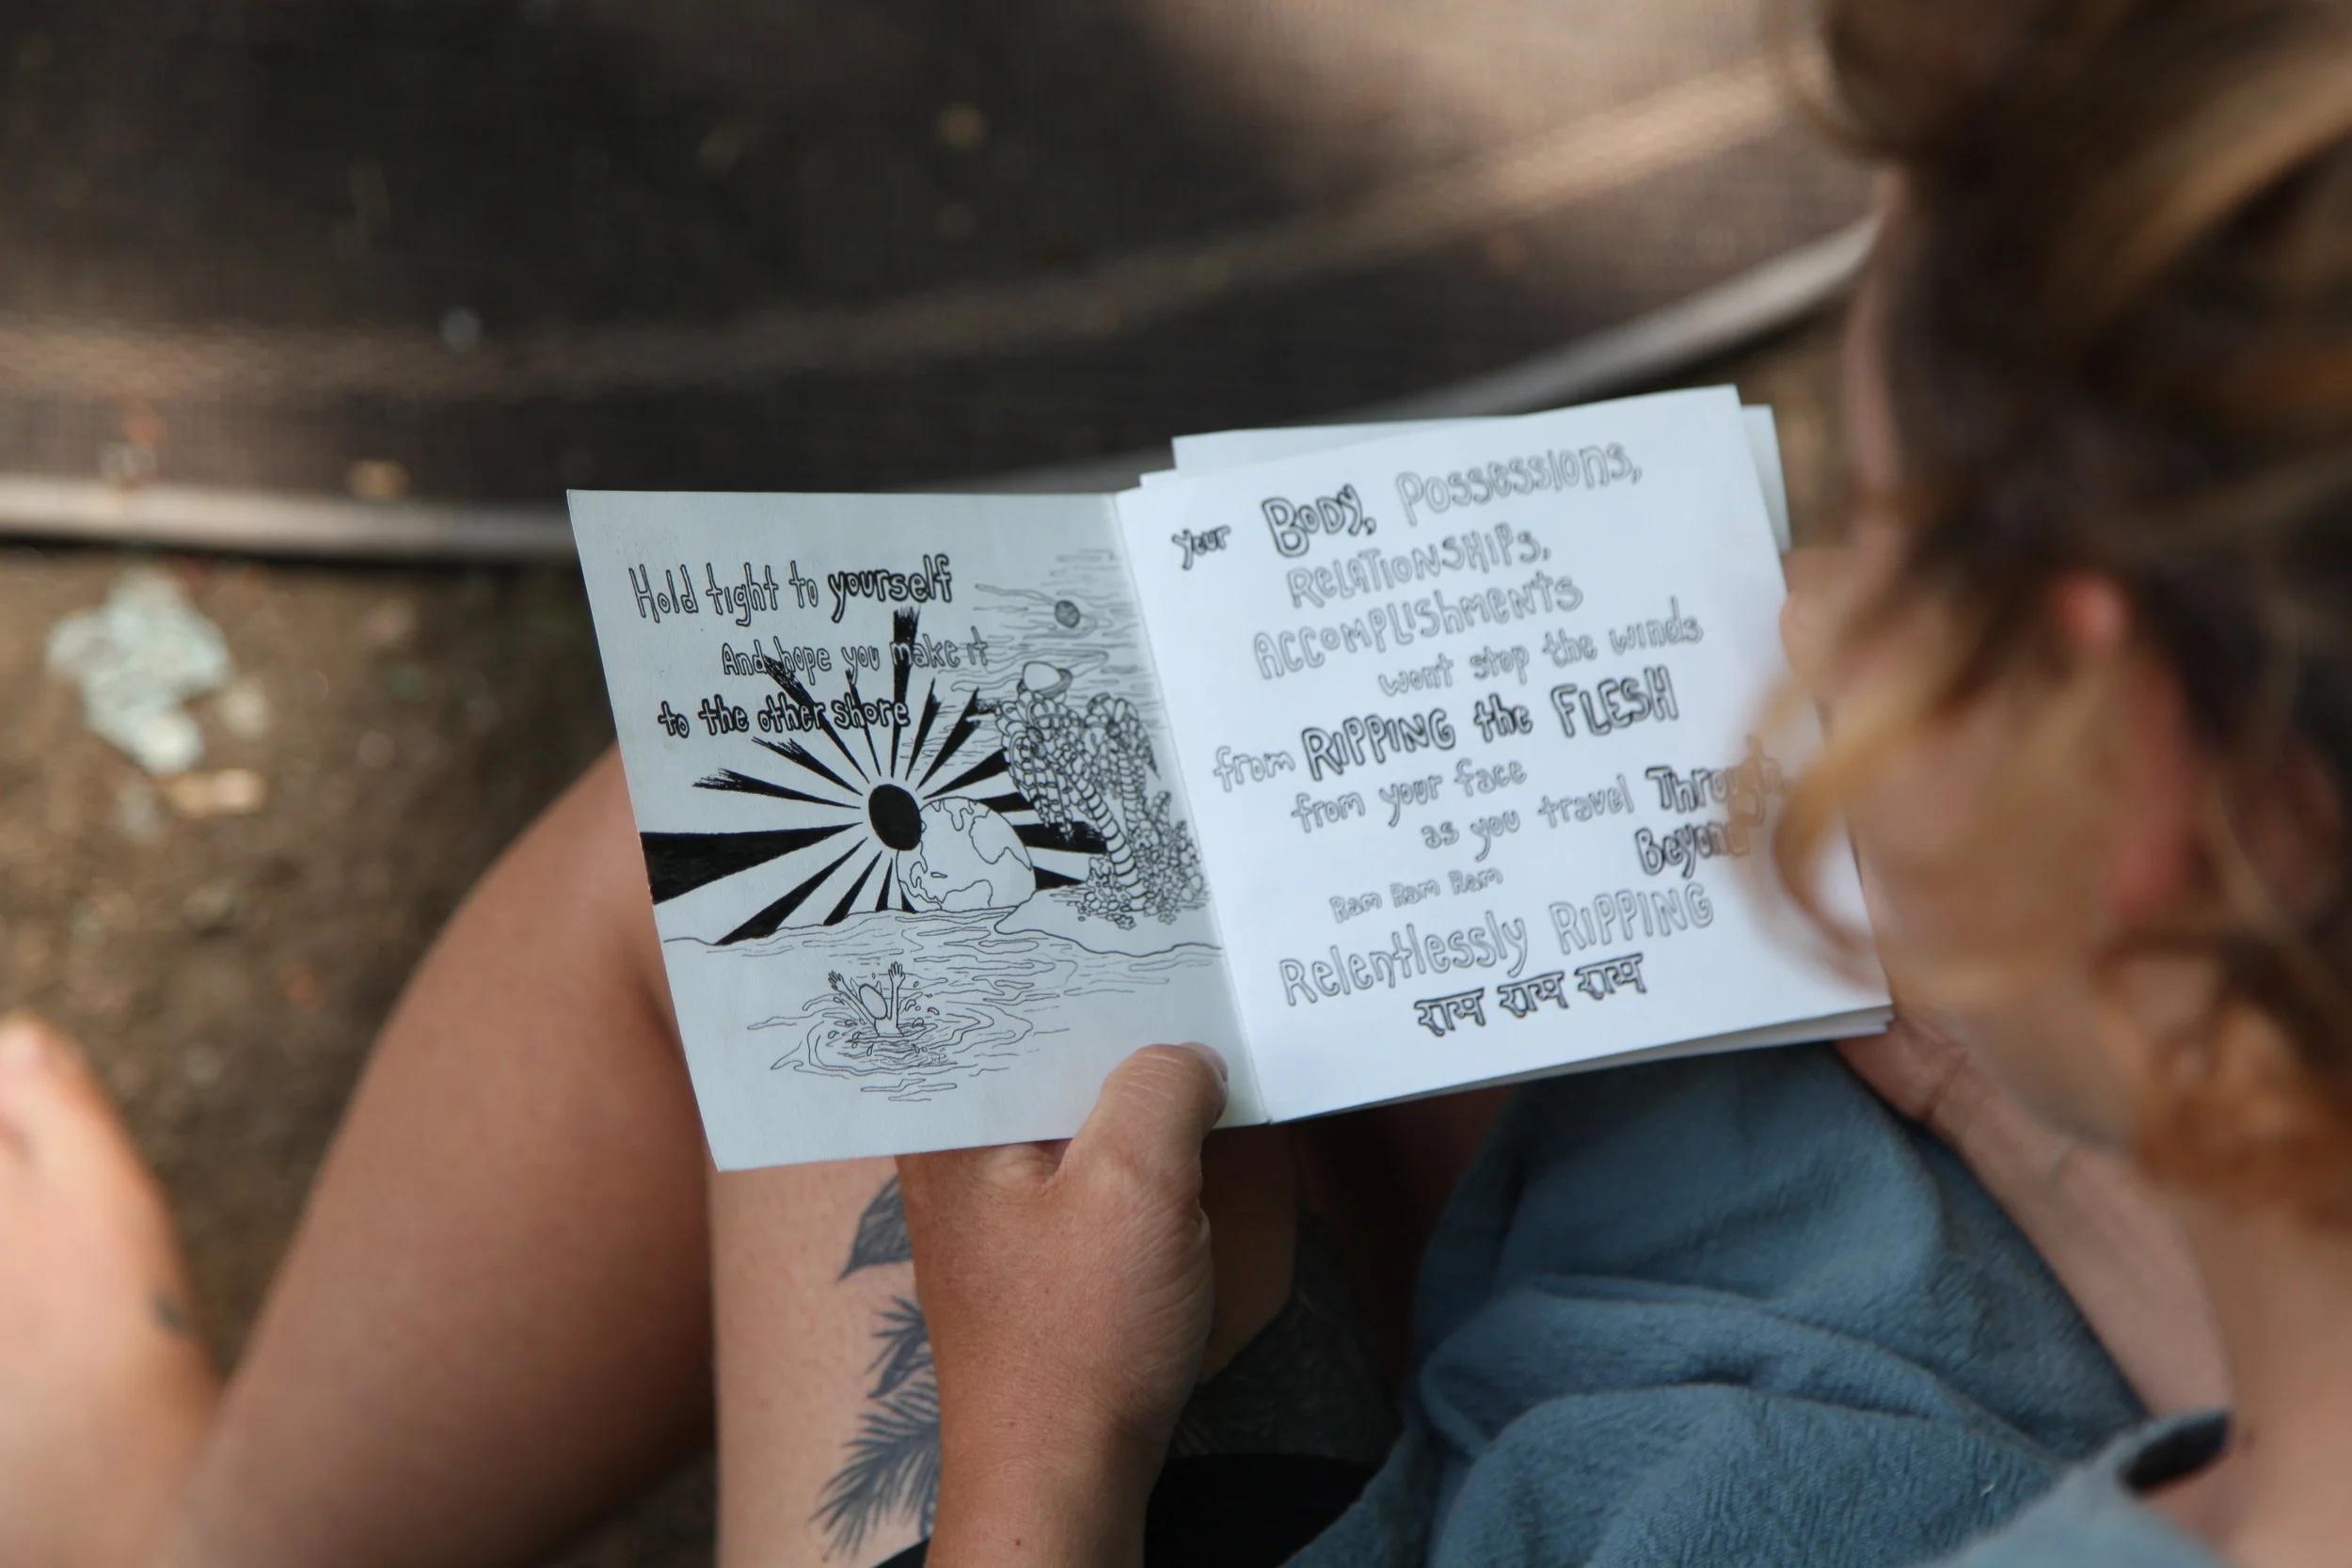 Hold tight to yourself
And hope you make it
to the other shore
your Body, Possessions,
Relationships,
Accomplishments
wont stop the winds
from Ripping the Flesh
from your face
as you travel Through
Beyond
Ram Ram Ram
Relentlessly Ripping
राम राम राम